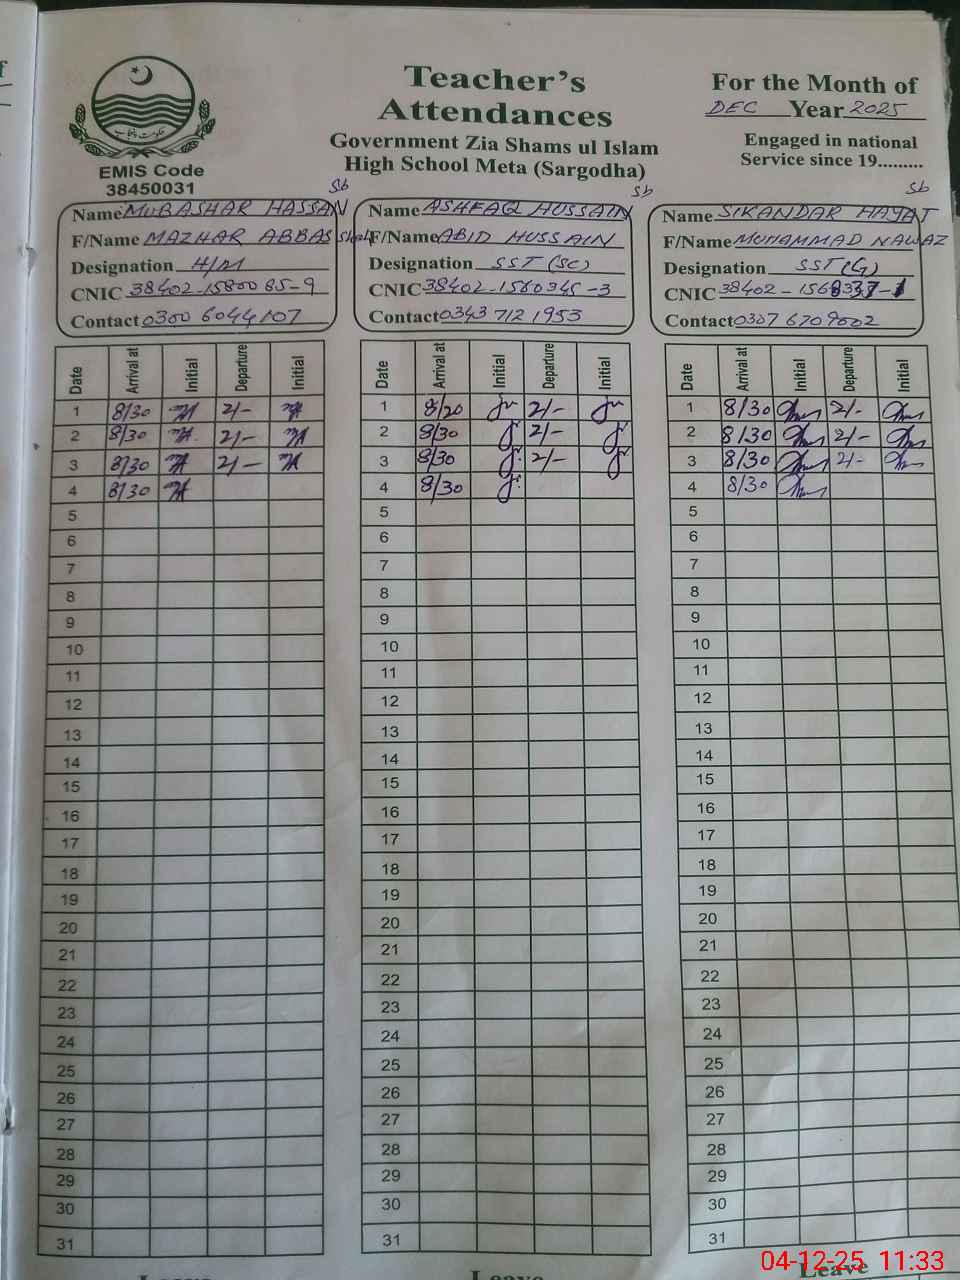 f
Teacher's
Attendances
Government Zia Shams ul Islam
High School Meta (Sargodha)
For the Month of
DEC Year 2025
Engaged in national
Service since 19.........
حکومت پنجاب
EMIS Code
38450031
Sb
Name MUBASHAR HASSAN
F/Name MAZHAR ABBAS
Designation H/M
CNIC 38402-1580085-9
Contact 0300 6044107
Sb
Name ASHFAQ HUSSAIN
F/Name ABID HUSSAIN
Designation SST (SC)
CNIC 38402-1560345-3
Contact 0343 712 1953
Sb
Name SIKANDAR HAYAT
F/Name MUHAMMAD NAWAZ
Designation SST (G)
CNIC 38402-
Contact 0307 6709002
Date Arrival at Initial Departure Initial Date Arrival at Initial Departure Initial Date Arrival at Initial Departure Initial
1 8/30 2/- 1 8/20 2/- 1 8/30 2/-
2 8/30 2/- 2 8/30 2/- 2 8/30 2/-
3 8/30 2/- 3 8/30 2/- 3 8/30 2/-
4 8/30 4 8/30 4 8/30
5 5 5
6 6 6
7 7 7
8 8 8
9 9 9
10 10 10
11 11 11
12 12 12
13 13 13
14 14 14
15 15 15
16 16 16
17 17 17
18 18 18
19 19 19
20 20 20
21 21 21
22 22 22
23 23 23
24 24 24
25 25 25
26 26 26
27 27 27
28 28 28
29 29 29
30 30 30
31 31 31
Leave Leave Leave
04-12-25 11:33